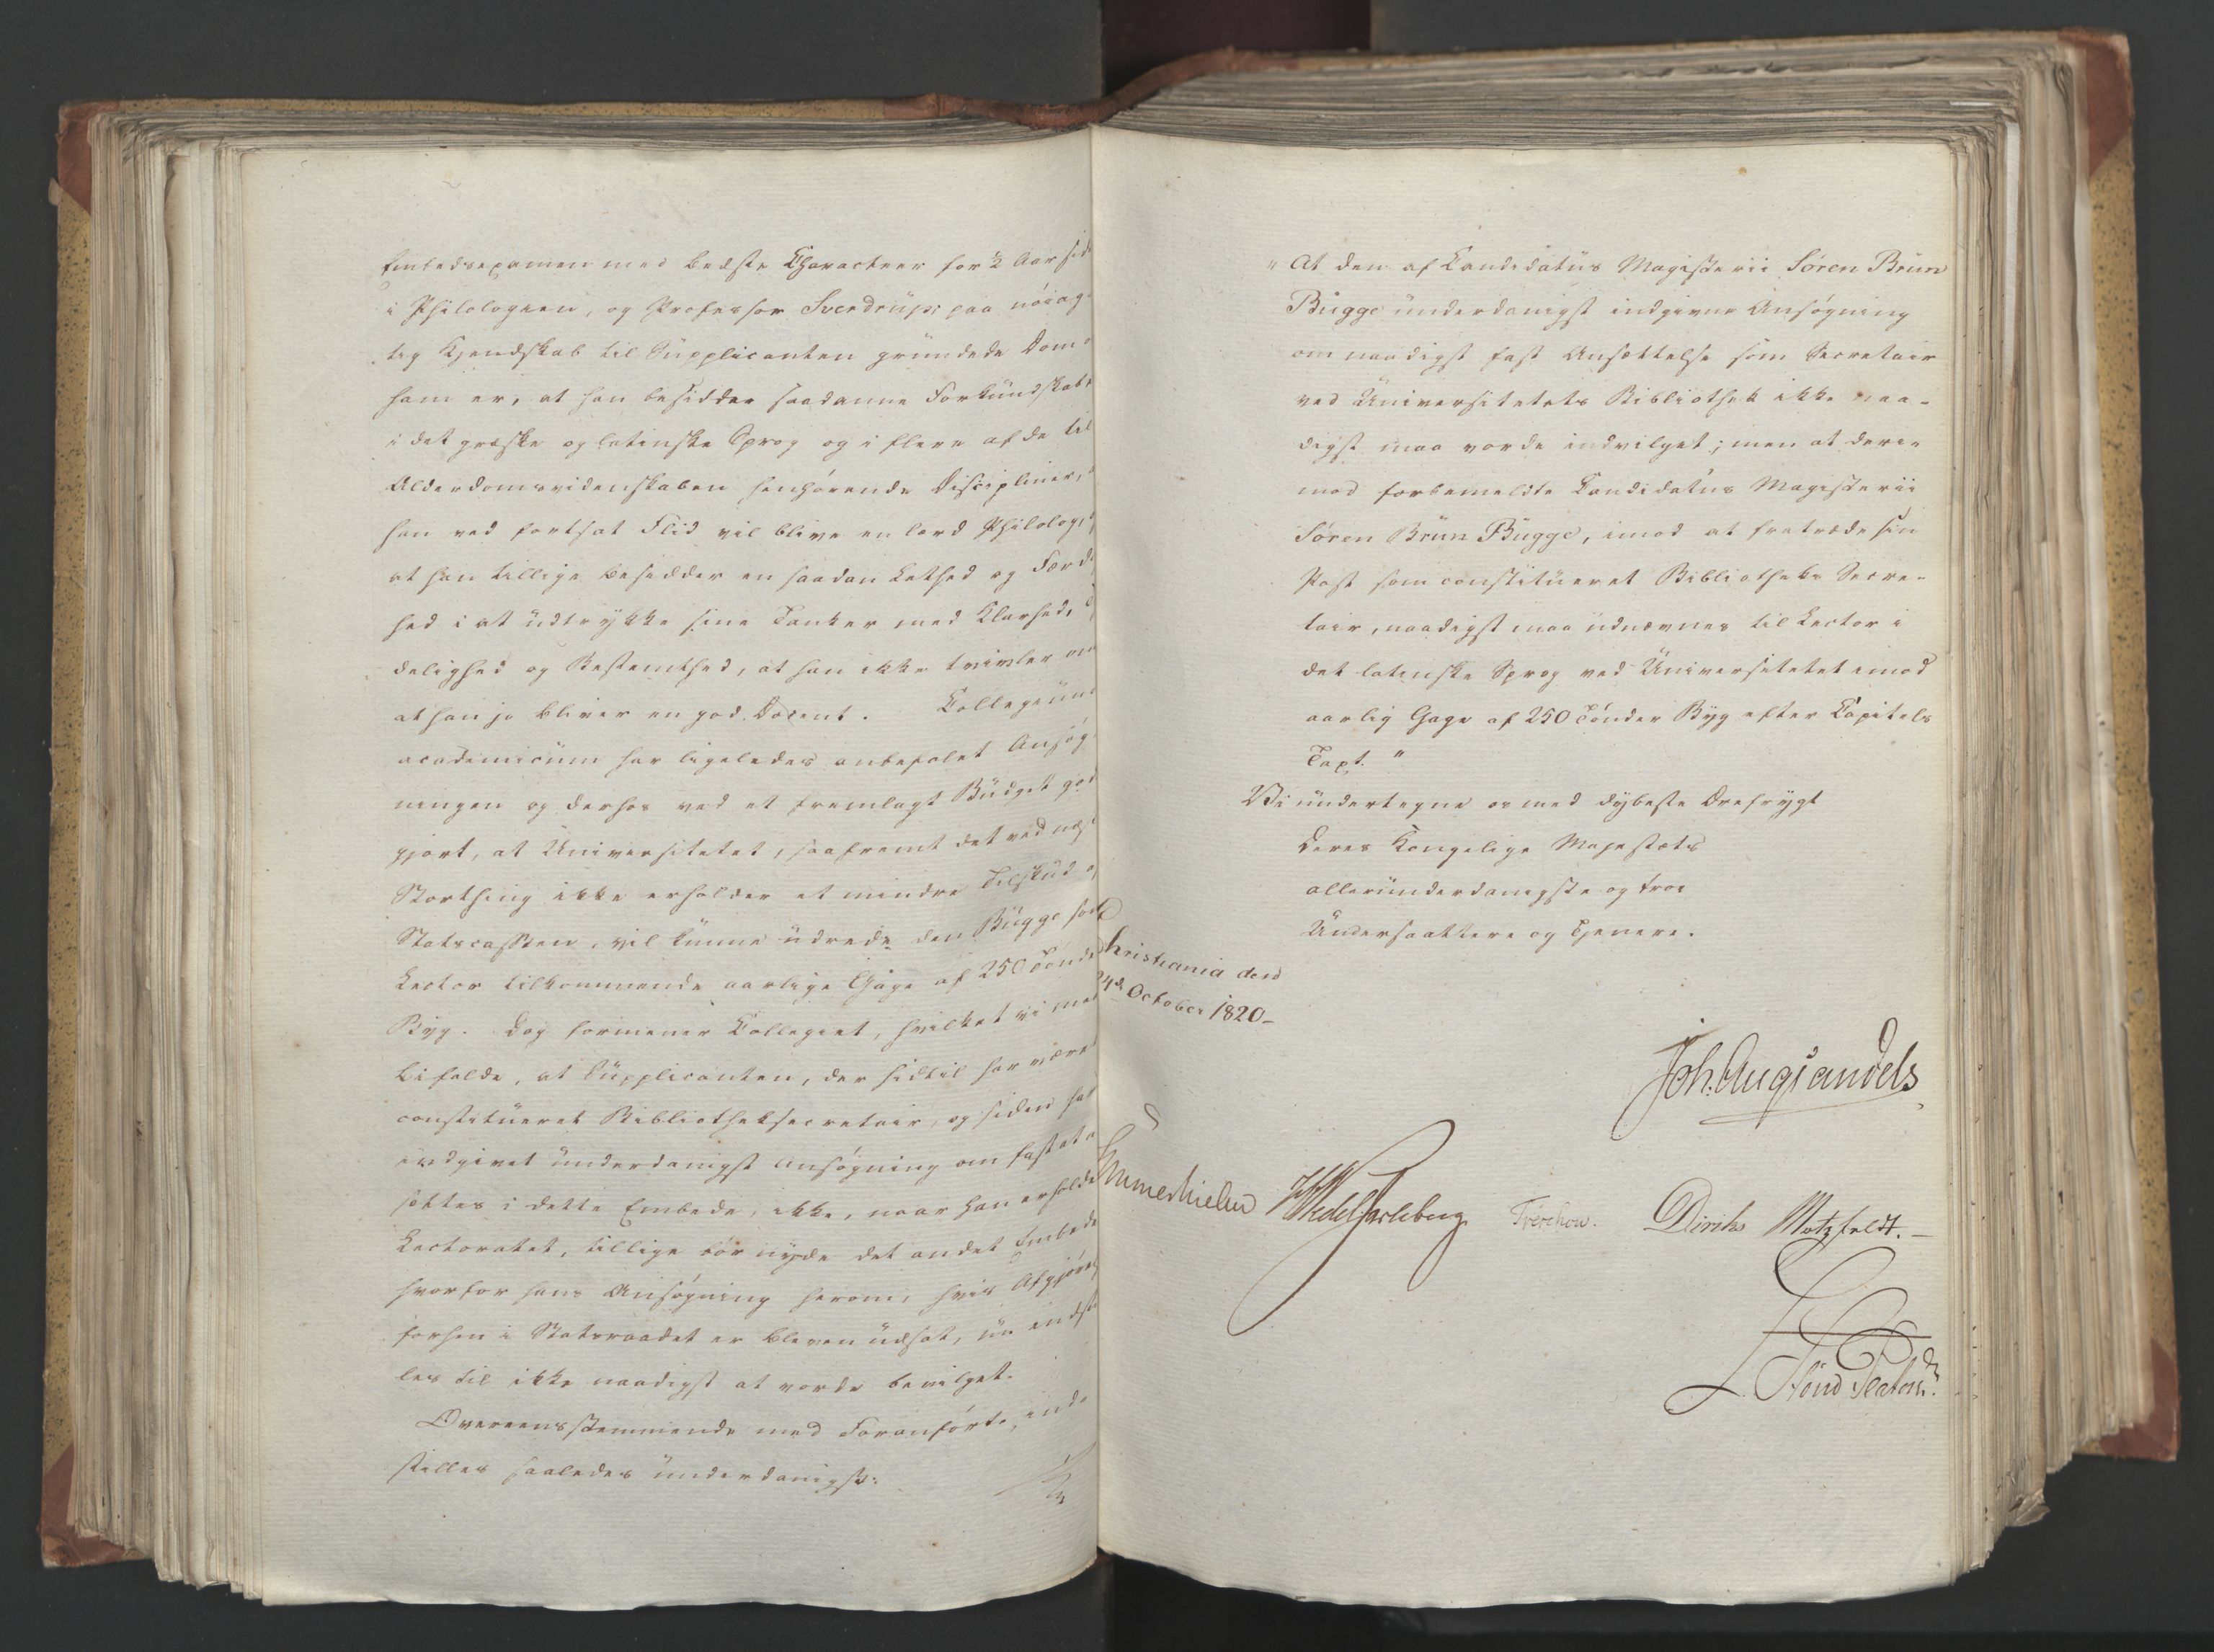 Embedsexamen med bedste Character for ½ Aar sid
i Philologien, og Professor Sverdrups paa nöiag
tig Kjendskab til Supplicanten grundede Dom
ham er, at han besidder saadanne Forkundskab
i det græske og latinske Sprog og i flere af de til
Alderdomsvidenskaben henhörende Discipliner,
han ved fortsat Flid vil blive en lærd Philolog,
at han tillige besidder en saadan Lethed og Færd
hed i at udtrykke sine Tanker med Klarhed,
delighed og Bestemthed, at han ikke tvivler om
at han jo bliver en god Docent. Collegium
academicum har ligeledes anbefalet Ansög
ningen og derhos ved et fremlagt Budget god
gjort, at Universitetet, saafremt det ved næs
Storthing ikke erholder et mindre Tilskud af
Statscassen, vil kunne udrede den Bugge som
Lector tilkommende aarlige Gage af 250 Tönd
Byg. Dog formener Collegiet, hvilket vi maa
bifalde, at Supplicanten, der hidtil har været
constitueret Bibliotheksecretair, og siden har
indgivet underdanigst Ansögning om fast at a
sættes i dette Embede, ikke, naar han erholde
Lectoratet, tillige bör nyde det andet Embede
hvorfor hans Ansögning herom, hvis Afgjörel
forhen i Statsraadet er bleven udsat, nu indstil
les til ikke naadigst at vorde bevilget.
Overeensstemmende med Foranförte, ind
stilles saaledes underdanigst:
" At den af Candidatus Magisterii Sören Brun
Bugge underdanigst indgivne Ansögning
om naadigst fast Ansættelse som Secretair
ved Universitetets Bibliothek ikke naa-
digst maa vorde indvilget; men at deri-
mod forbemeldte Candidatus Magisterii
Sören Brun Bugge, imod at fratræde sin
Post som constitueret Bibliotheks Secre-
tair, naadigst maa udnævnes til Lector i
det latinske Sprog ved Universitetet imod
aarlig Gage af 250 Tönder Byg efter Capitels
Taxt. "
Vi undertegne os med dybeste Ærefrygt
Deres Kongelige Majestæts
allerunderdanigste og troe
Undersaattere og Tjenere.
Christiania den
24d October 1820-
Joh. Aug. Sandels
Sommerhielm HWedel Jarlsberg Treschow. Diriks Motzfeldt.-